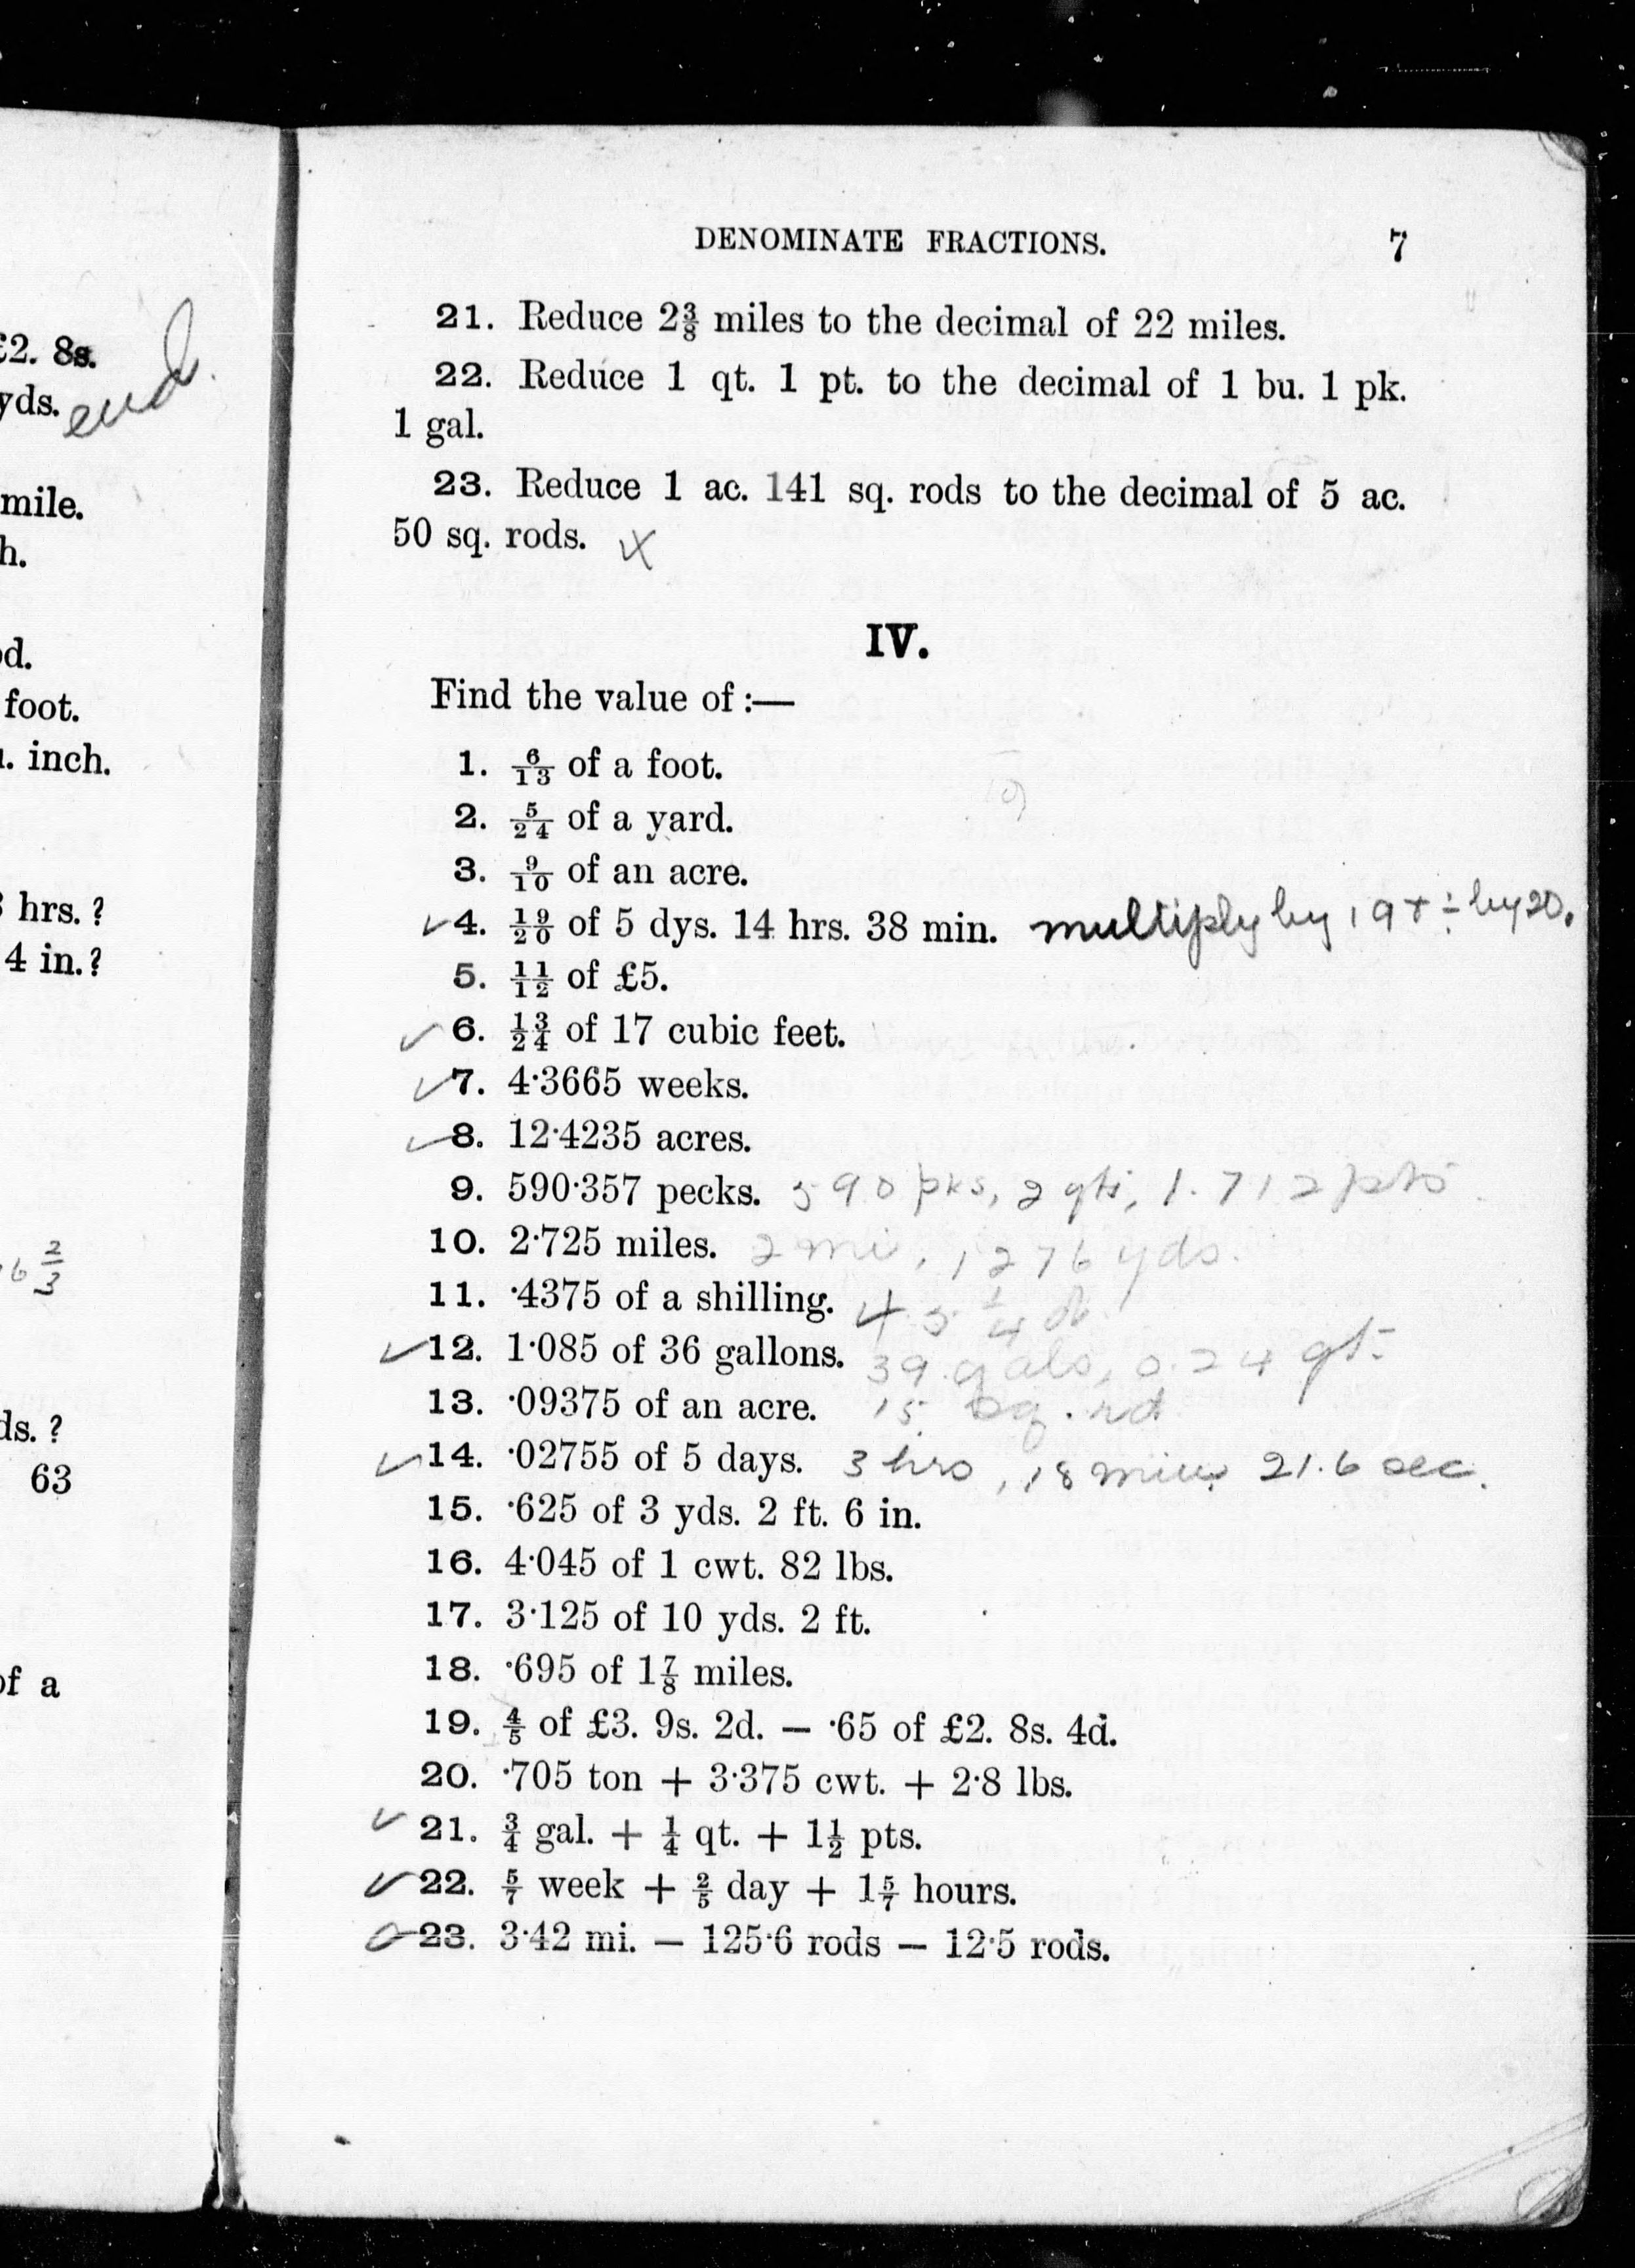 £2. 8s.
yds. end
mile.
h.
od.
foot.
u. inch.
3 hrs. ?
4 in. ?
6 2/3
ds. ?
63
of a
DENOMINATE FRACTIONS. 7
21. Reduce 2⅜ miles to the decimal of 22 miles.
22. Reduce 1 qt. 1 pt. to the decimal of 1 bu. 1 pk.
1 gal.
23. Reduce 1 ac. 141 sq. rods to the decimal of 5 ac.
50 sq. rods. X
IV.
Find the value of :—
1. 6/13 of a foot.
2. 5/24 of a yard.
3. 9/10 of an acre.
✓4. 19/20 of 5 dys. 14 hrs. 38 min. multiply by 19 + ÷ by 20.
5. 11/12 of £5.
✓6. 13/24 of 17 cubic feet.
✓7. 4·3665 weeks.
✓8. 12·4235 acres.
9. 590·357 pecks. 590 pks, 2 qts, 1.712 pts
10. 2·725 miles. 2 mi, 1276 yds.
11. ·4375 of a shilling. 5 1/4 d
✓12. 1·085 of 36 gallons. 39 gals, 0.24 qt.
13. ·09375 of an acre. 15 sq. rd
✓14. ·02755 of 5 days. 3 hrs, 18 min, 21.6 sec.
15. ·625 of 3 yds. 2 ft. 6 in.
16. 4·045 of 1 cwt. 82 lbs.
17. 3·125 of 10 yds. 2 ft.
18. ·695 of 1⅞ miles.
19. ⅘ of £3. 9s. 2d. — ·65 of £2. 8s. 4d.
20. ·705 ton + 3·375 cwt. + 2·8 lbs.
✓21. ¾ gal. + ¼ qt. + 1½ pts.
✓22. 5/7 week + ⅖ day + 1 5/7 hours.
23. 3·42 mi. — 125·6 rods — 12·5 rods.